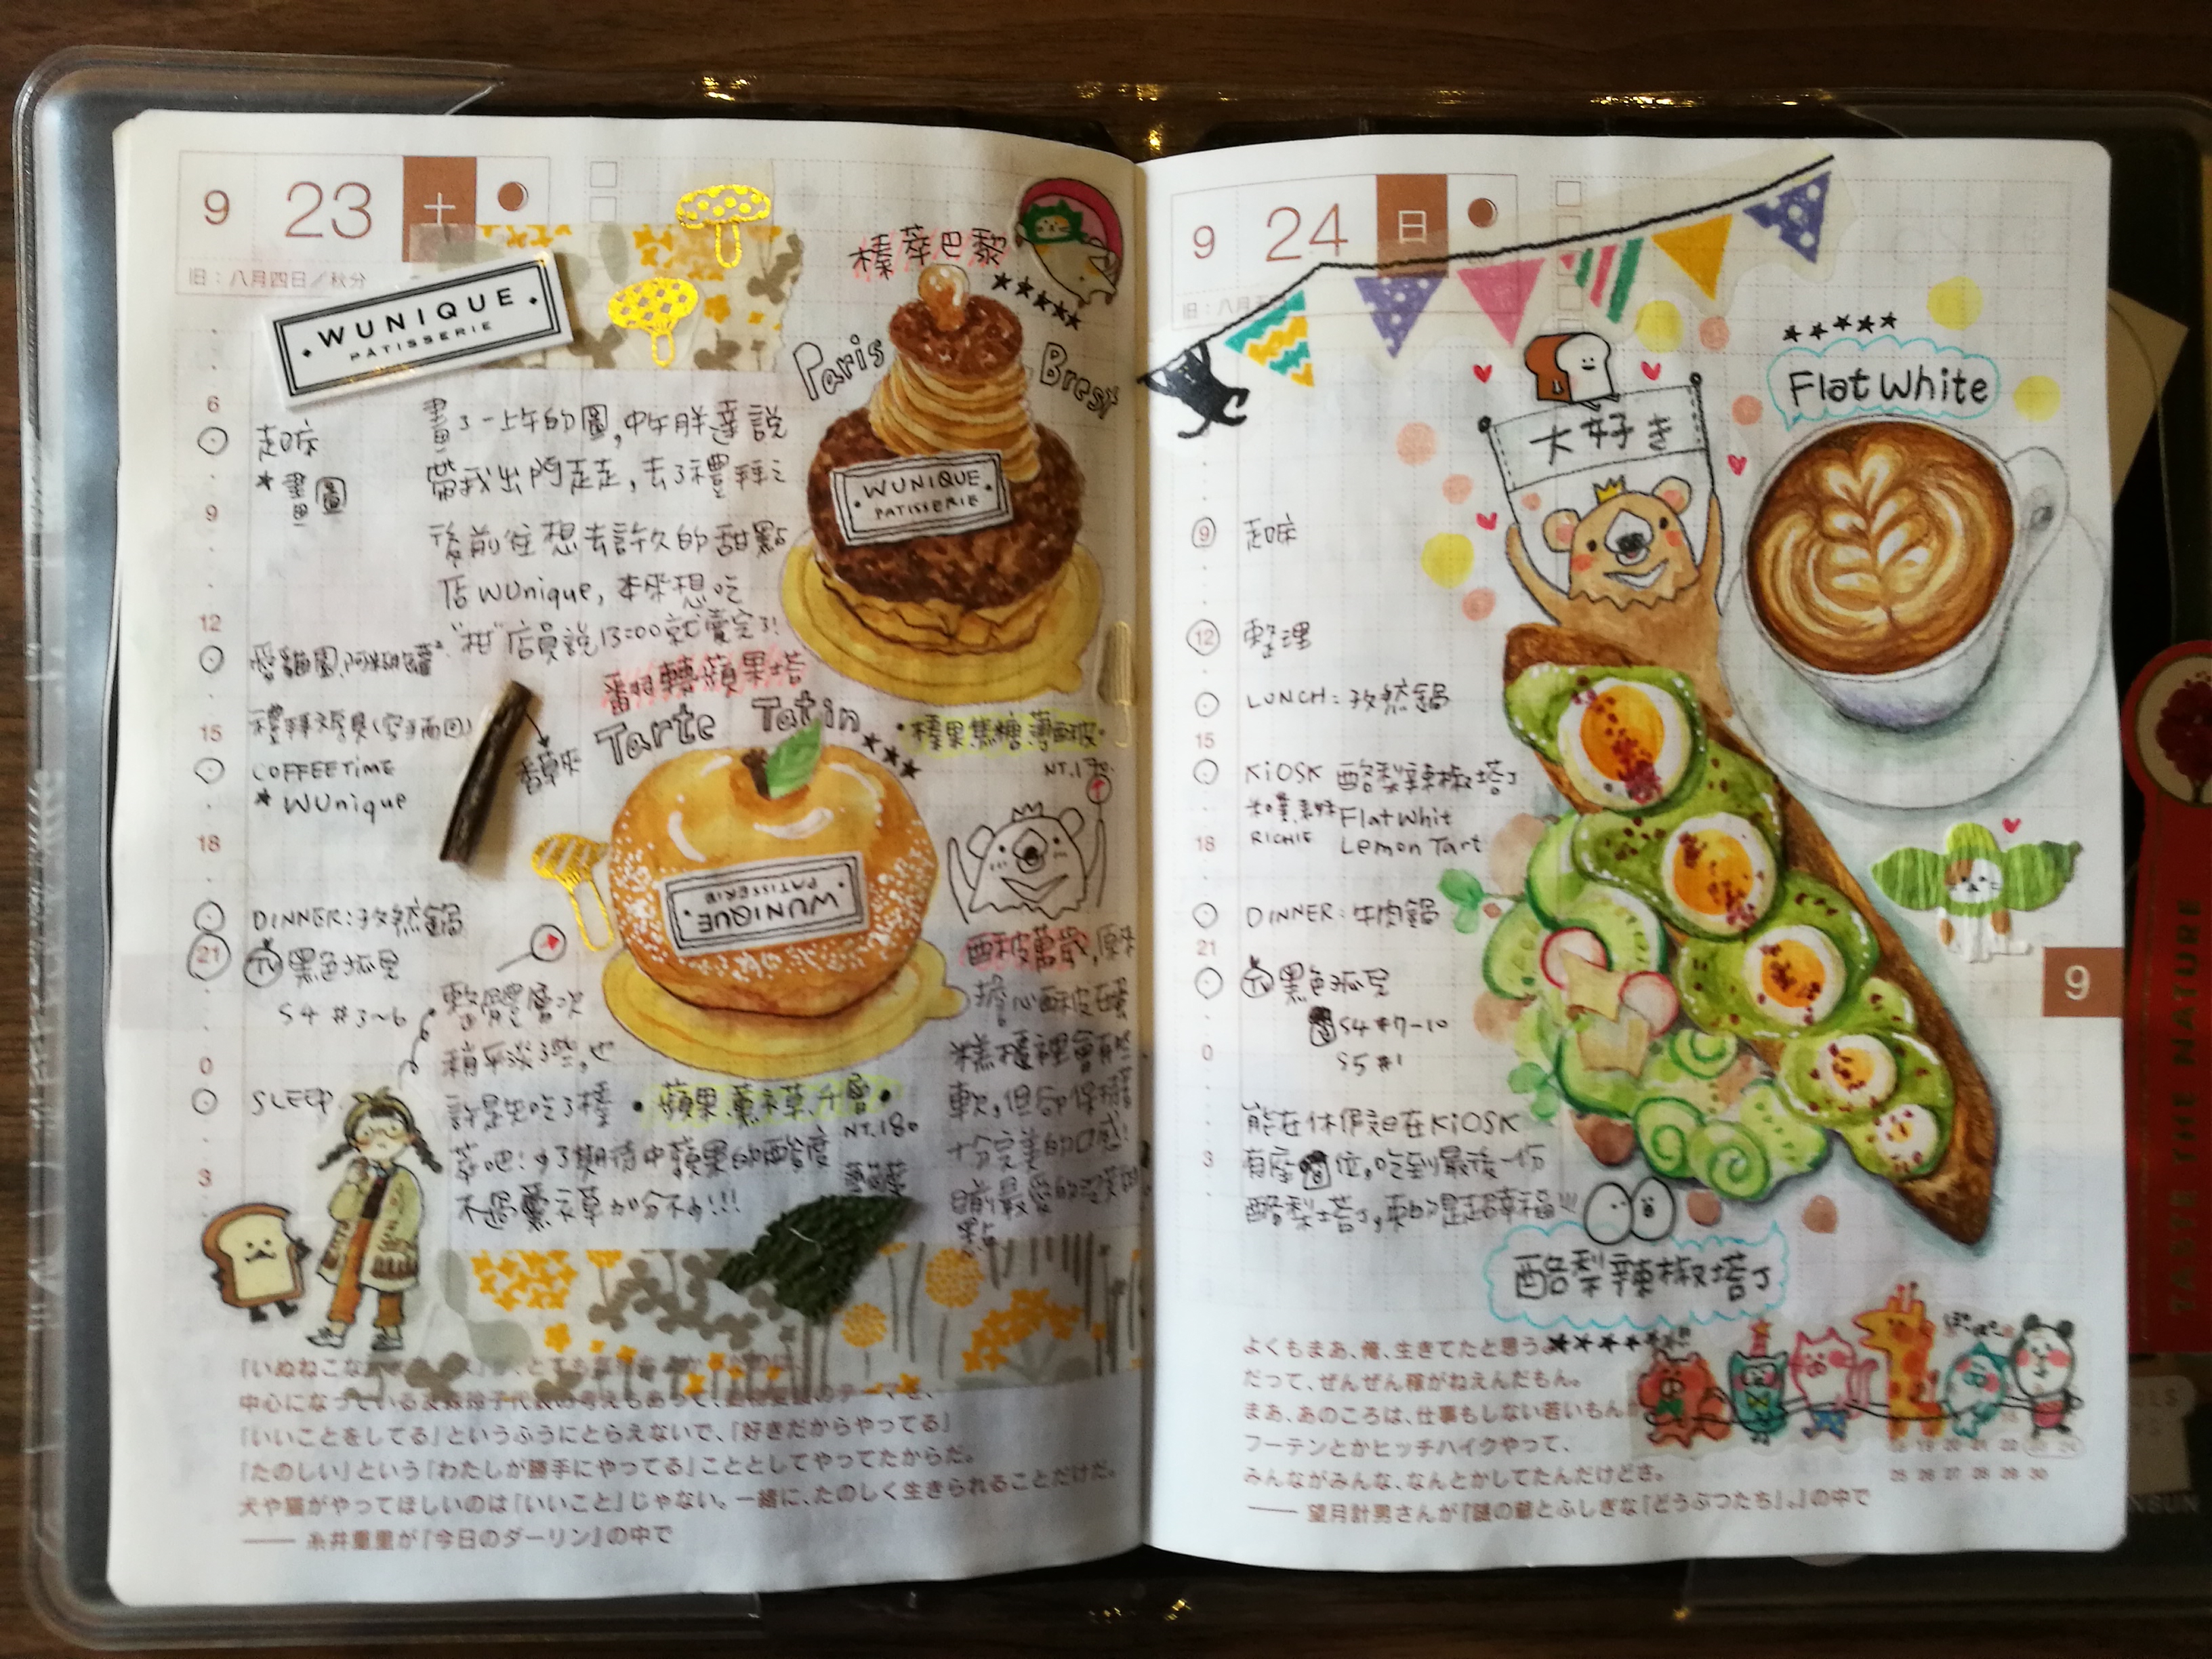 9 23 土
旧：八月四日／秋分
WUNIQUE
PATISSERIE
榛莘巴黎
★★★★★
Paris Brest
WUNIQUE
PATISSERIE
6
起床
★畫圖
9
12
愛貓園
15
COFFEETIME
★WUnique
18
DINNER:孜然鍋
21
TV 黑色孤兒
S4 #3~6
0
SLEEP
3
畫了一上午的圖,中午胖達說
帶我出門走走,去了禮拜之
後前往想去許久的甜點
店WUnique,本來想吃
"柑"店員說13:00就賣完了!
香草莢
翻轉蘋果塔
Tarte Tatin
★★★★
•榛果焦糖.薄酥皮•
NT.190.
WUNIQUE
PATISSERIE
整體層次
稍平淡了些,也
許是先吃了榛
莘吧!少了期待中蘋果的酸度
不過薰衣草加分不少!!!
•蘋果.薰衣草.千層•
NT.180
酥皮萬歲,原來
擔心酥皮在蛋
糕櫃裡會
軟,但卻保
十分完美的口感!
目前最愛的
點
「いぬねこな
中心になっている
「いいことをしてる」というふうにとらえないで、「好きだからやってる」
「たのしい」という「わたしが勝手にやってる」こととしてやってたからだ。
犬や猫がやってほしいのは「いいこと」じゃない。一緒に、たのしく生きられることだけだ。
—— 糸井重里が『今日のダーリン』の中で
9 24 日
旧：八月
大好き
★★★★★
Flat White
9
起床
12
整理
LUNCH:孜然鍋
15
KiOSK 酪梨辣椒塔丁
Flat Whit
18
RICHIE Lemon Tart
DINNER:牛肉鍋
21
TV 黑色孤兒
S4 #7-10
0
S5 #1
能在休假日在KiOSK
3
有座位,吃到最後一份
酪梨塔丁,真的是超幸福!!!
酪梨辣椒塔丁
9
よくもまあ、俺、生きてたと思うよ
だって、ぜんぜん稼がねえんだもん。
まあ、あのころは、仕事もしない若いもんが
フーテンとかヒッチハイクやって、
みんながみんな、なんとかしてたんだけどさ。
—— 望月計男さんが『謎の爺とふしぎな「どうぶつたち」。』の中で
18 19 20 21 22 23 24
25 26 27 28 29 30
TASTE THE NATURE